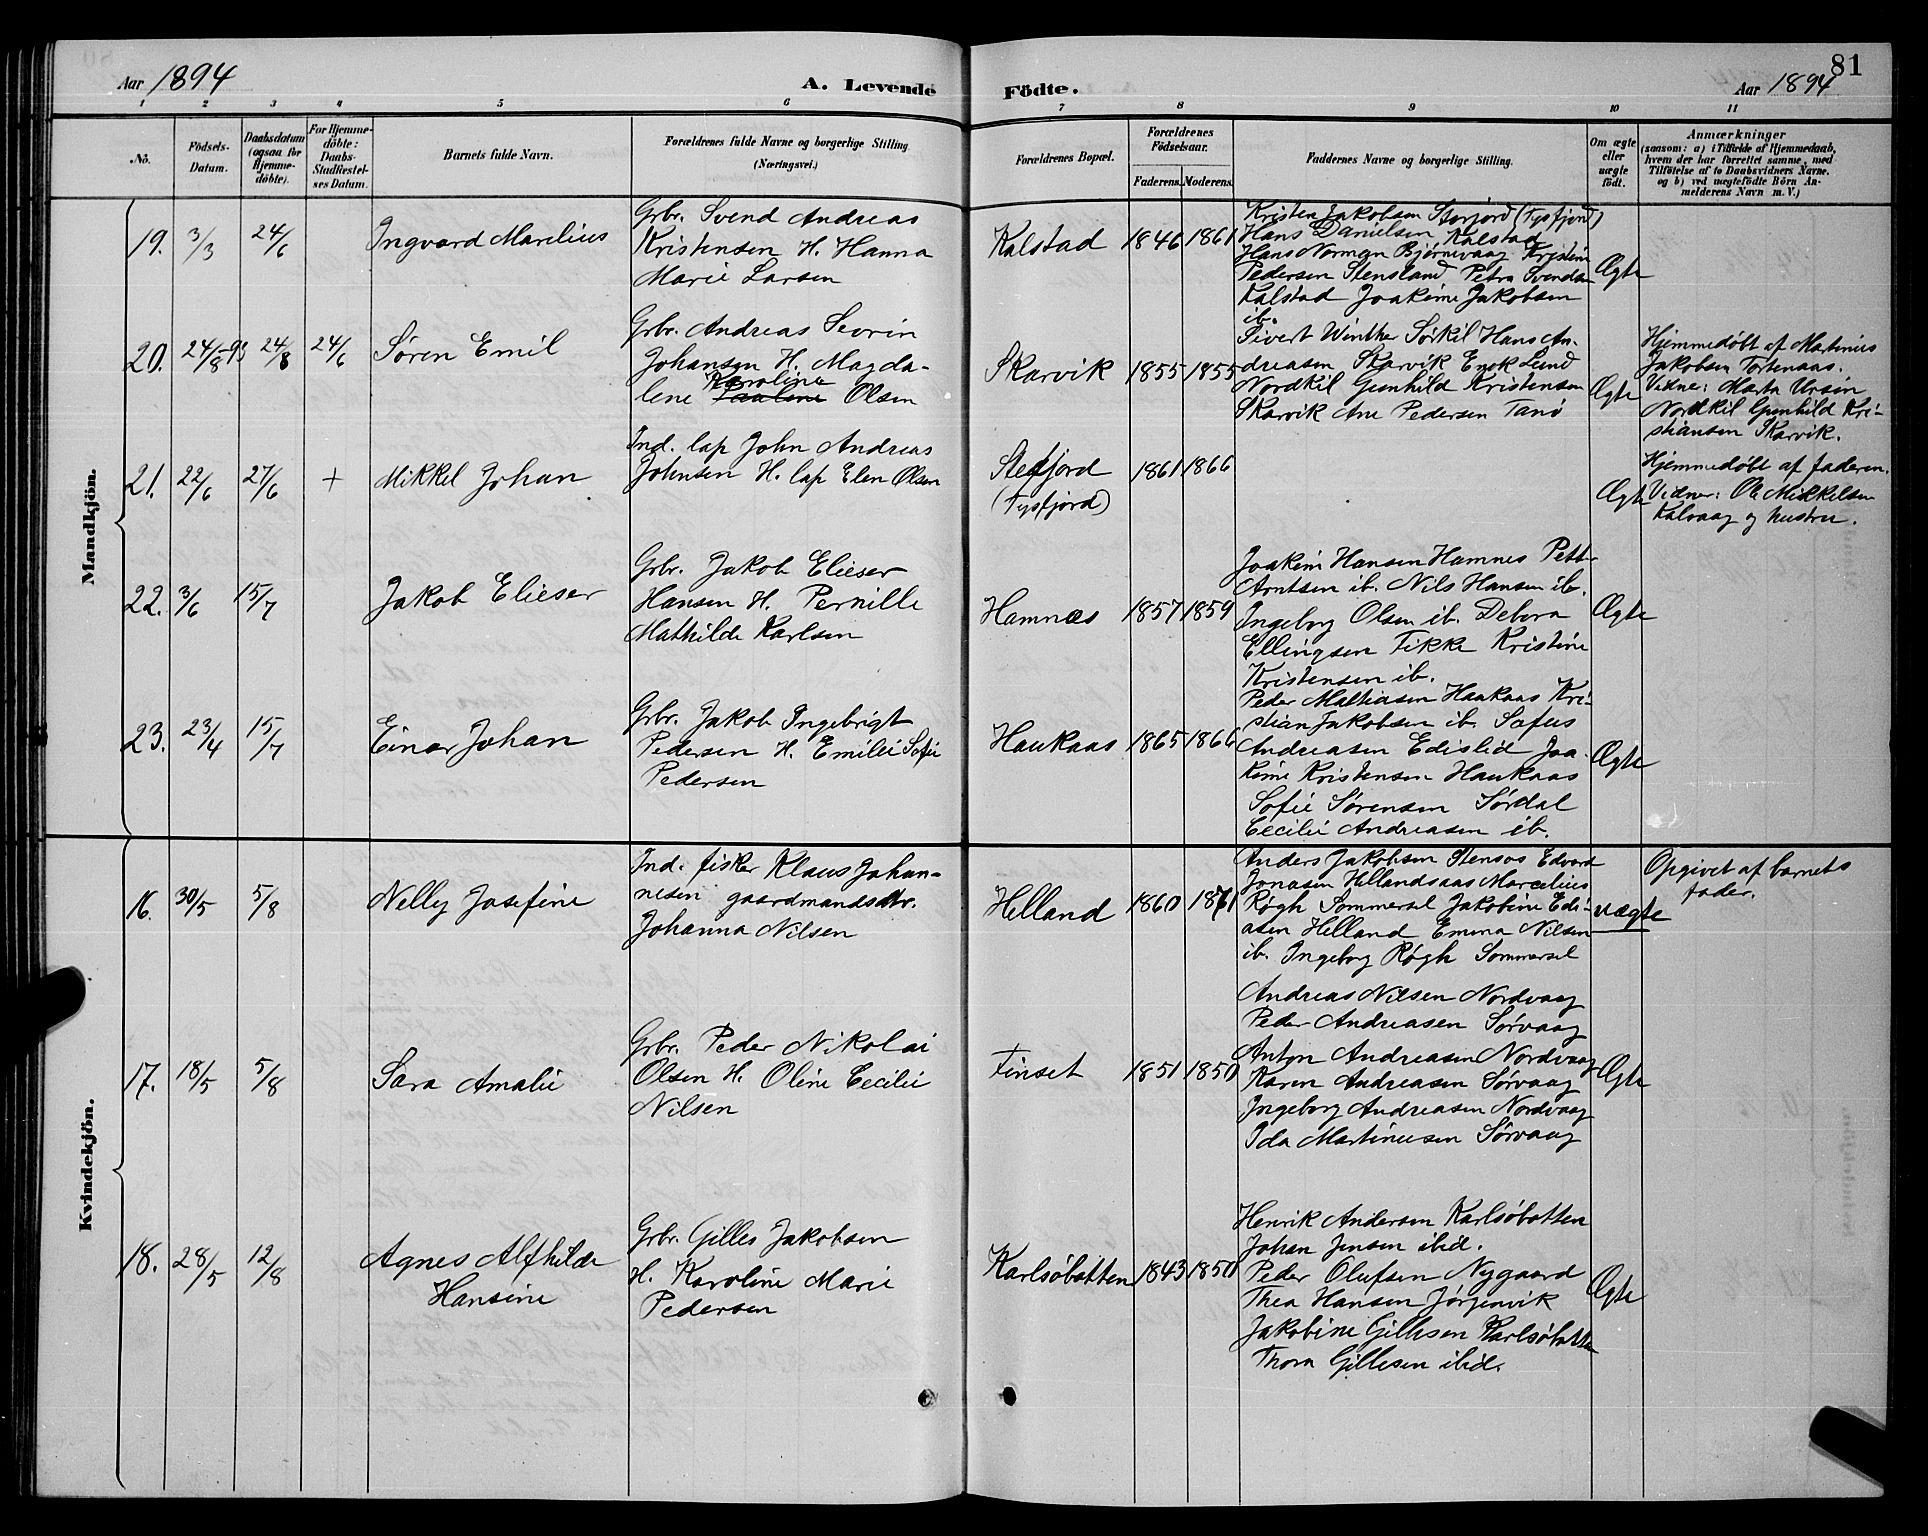 81
Aar 1894
A. Levende
Födte.
Aar 1894
1 2 3 4 5 6 7 8 9 10 11
Nô.
Födsels-
Datum.
Daabsdatum
(ogsaa for
Hjemme-
döbte).
For Hjemme-
döbte:
Daabs-
Stadfæstel-
ses Datum.
Barnets fulde Navn.
Forældrenes fulde Navne og borgerlige Stilling
(Næringsvei.)
Forældrenes Bopæl.
Forældrenes
Födselsaar.
Faderens. Moderens.
Faddernes Navne og borgerlige Stilling.
Om ægte
eller
uægte
födt.
Anmærkninger
(saasom: a) i Tilfælde af Hjemmedaab,
hvem der har forrettet samme, med
Tilföielse af to Daabsvidners Navne.
og b) ved uægtefödte Börn An-
melderens Navn m. V.)
Mandkjön.
19. 3/3 24/6
Ingvard Marelius
Grbr. Svend Andreas
Kristensen H. Hanna
Marie Larsen
Kalstad 1846 1861
Kristen Jakobsen Storjord (Tysfjord)
Hans Danielsen Kalstad
Hans Norman Bjørnevaag Kristine
Pedersen Stensland Petra Svendsen
Kalstad Joakime Jakobsen
ib.
Ægte
20. 24/8-93 24/8 24/6
Søren Emil
Grbr. Andreas Sevrin
Johansen H. Magda-
lene Karoline Pauline Olsen
Skarvik 1855 1855
Sivert Winther Sørkil Hans An-
dreasen Skarvik Enok Lund
Nordkil Gunhild Kristensen
Skarvik Ane Pedersen Tanø
Ægte
Hjemmedøbt af Martinus
Jakobsen Tortenaas.
Vidne: Marta Ursin
Nordkil Gunhild Kri-
stiansen Skarvik.
21. 22/6 27/6 +
Mikkel Johan
Ind. lap John Andreas
Johnsen H. lap Elen Olsen
Stefjord
(Tysfjord)
1861 1866
Ægte
Hjemmedøbt af faderen.
Vidner: Ole Mikkelsen
Kalvaag og hustru.
22. 3/6 15/7
Jakob Elieser
Grbr. Jakob Elieser
Hansen H. Pernille
Mathilde Karlsen
Hamnæs 1857 1859
Joakim Hansen Hamnes Petter
Arntsen ib. Nils Hansen ib.
Ingeborg Olsen ib. Debora
Ellingsen Fikke Kristine
Kristensen ib.
Ægte
23. 23/4 15/7
Einar Johan
Grbr. Jakob Ingebrigt
Pedersen H. Emilie Sofie
Pedersen
Haukaas 1865 1866
Peder Mathiasen Haukaas Kri-
stian Jakobsen ib. Sofus
Andreasen Edislid Joa-
kime Kristensen Haukaas
Sofie Sørensen Sørdal
Cecilie Andreasen ib.
Ægte
Kvindekjön.
16. 30/5 5/8
Nelly Josefine
Ind. fisker Klaus Johan-
nesen gaardmandsdtr.
Johanna Nilsen
Helland 1860 1871
Anders Jakobsen Stensos Edvard
Jonasen Hellandsaas Marcelius
Røgh Sommersel Jakobine Edi-
asen Helland Emma Nilsen
ib. Ingeborg Røgh Sommersel
uægte
Opgivet af barnets
fader.
17. 18/5 5/8
Sara Amalie
Grbr. Peder Nikolai
Olsen H. Oline Cecilie
Nilsen
Finset 1851 1850
Andreas Nilsen Nordvaag
Peder Andreasen Sørvaag
Anton Andreasen Nordvaag
Karen Andreasen Sørvaag
Ingeborg Andreasen Nordvaag
Ida Martinusen Sørvaag
Ægte
18. 28/5 12/8
Agnes Alfhilde
Hansine
Grbr. Gilles Jakobsen
H. Karoline Marie
Pedersen
Karlsøbotten 1843 1850
Henrik Andersen Karlsøbotten
Johan Jensen ibid.
Peder Olufsen Nygaard
Thea Hansen Jørgenvik
Jakobine Gillesen Karlsøbotten
Thora Gillesen ibid.
Ægte